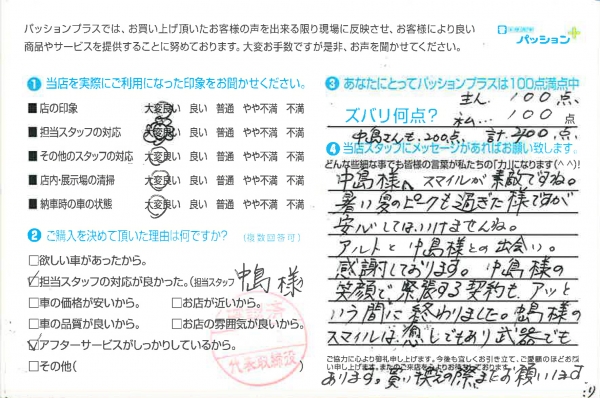 パッションプラスでは、お買い上げ頂いたお客様の声を出来る限り現場に反映させ、お客様により良い
商品やサービスを提供することに努めております。大変お手数ですが是非、お声を聞かせてください。
パッション
1 当店を実際にご利用になった印象をお聞かせください。
■店の印象 大変良い 良い 普通 やや不満 不満
■担当スタッフの対応 大変良い 良い 普通 やや不満 不満
■その他のスタッフの対応 大変良い 良い 普通 やや不満 不満
■店内・展示場の清掃 大変良い 良い 普通 やや不満 不満
■納車時の車の状態 大変良い 良い 普通 やや不満 不満
2 ご購入を決めて頂いた理由は何ですか? (複数回答可)
□欲しい車があったから。
☑担当スタッフの対応が良かった。(担当スタッフ 中島様
□車の価格が安いから。 □お店が近いから。
□車の品質が良いから。 □お店の雰囲気が良いから。
☑アフターサービスがしっかりしているから。
□その他( )
代表取締役
3 あなたにとってパッションプラスは100点満点中
主人 100点、
ズバリ何点? 私... 100点
中島さんも、200点、計200点、
4 当店スタッフにメッセージがあればお願い致します。
どんな些細な事でも皆様の言葉が私たちの「力」になります(^^)!
中島様、スマイルが素敵ですね。
暑い夏のピークも過ぎた様ですが
安心してはいけませんね。
アルトと中島様との出会い。
感謝しております。中島様の
笑顔で緊張する契約も、アッと
いう間に終わりました。中島様の
スマイルは、癒しでもあり武器でも
ご協力に心より御礼申し上げます。今後も宜しくお引き立て、ご愛顧のほどお
あります。買い換えの際またお願いします
:)